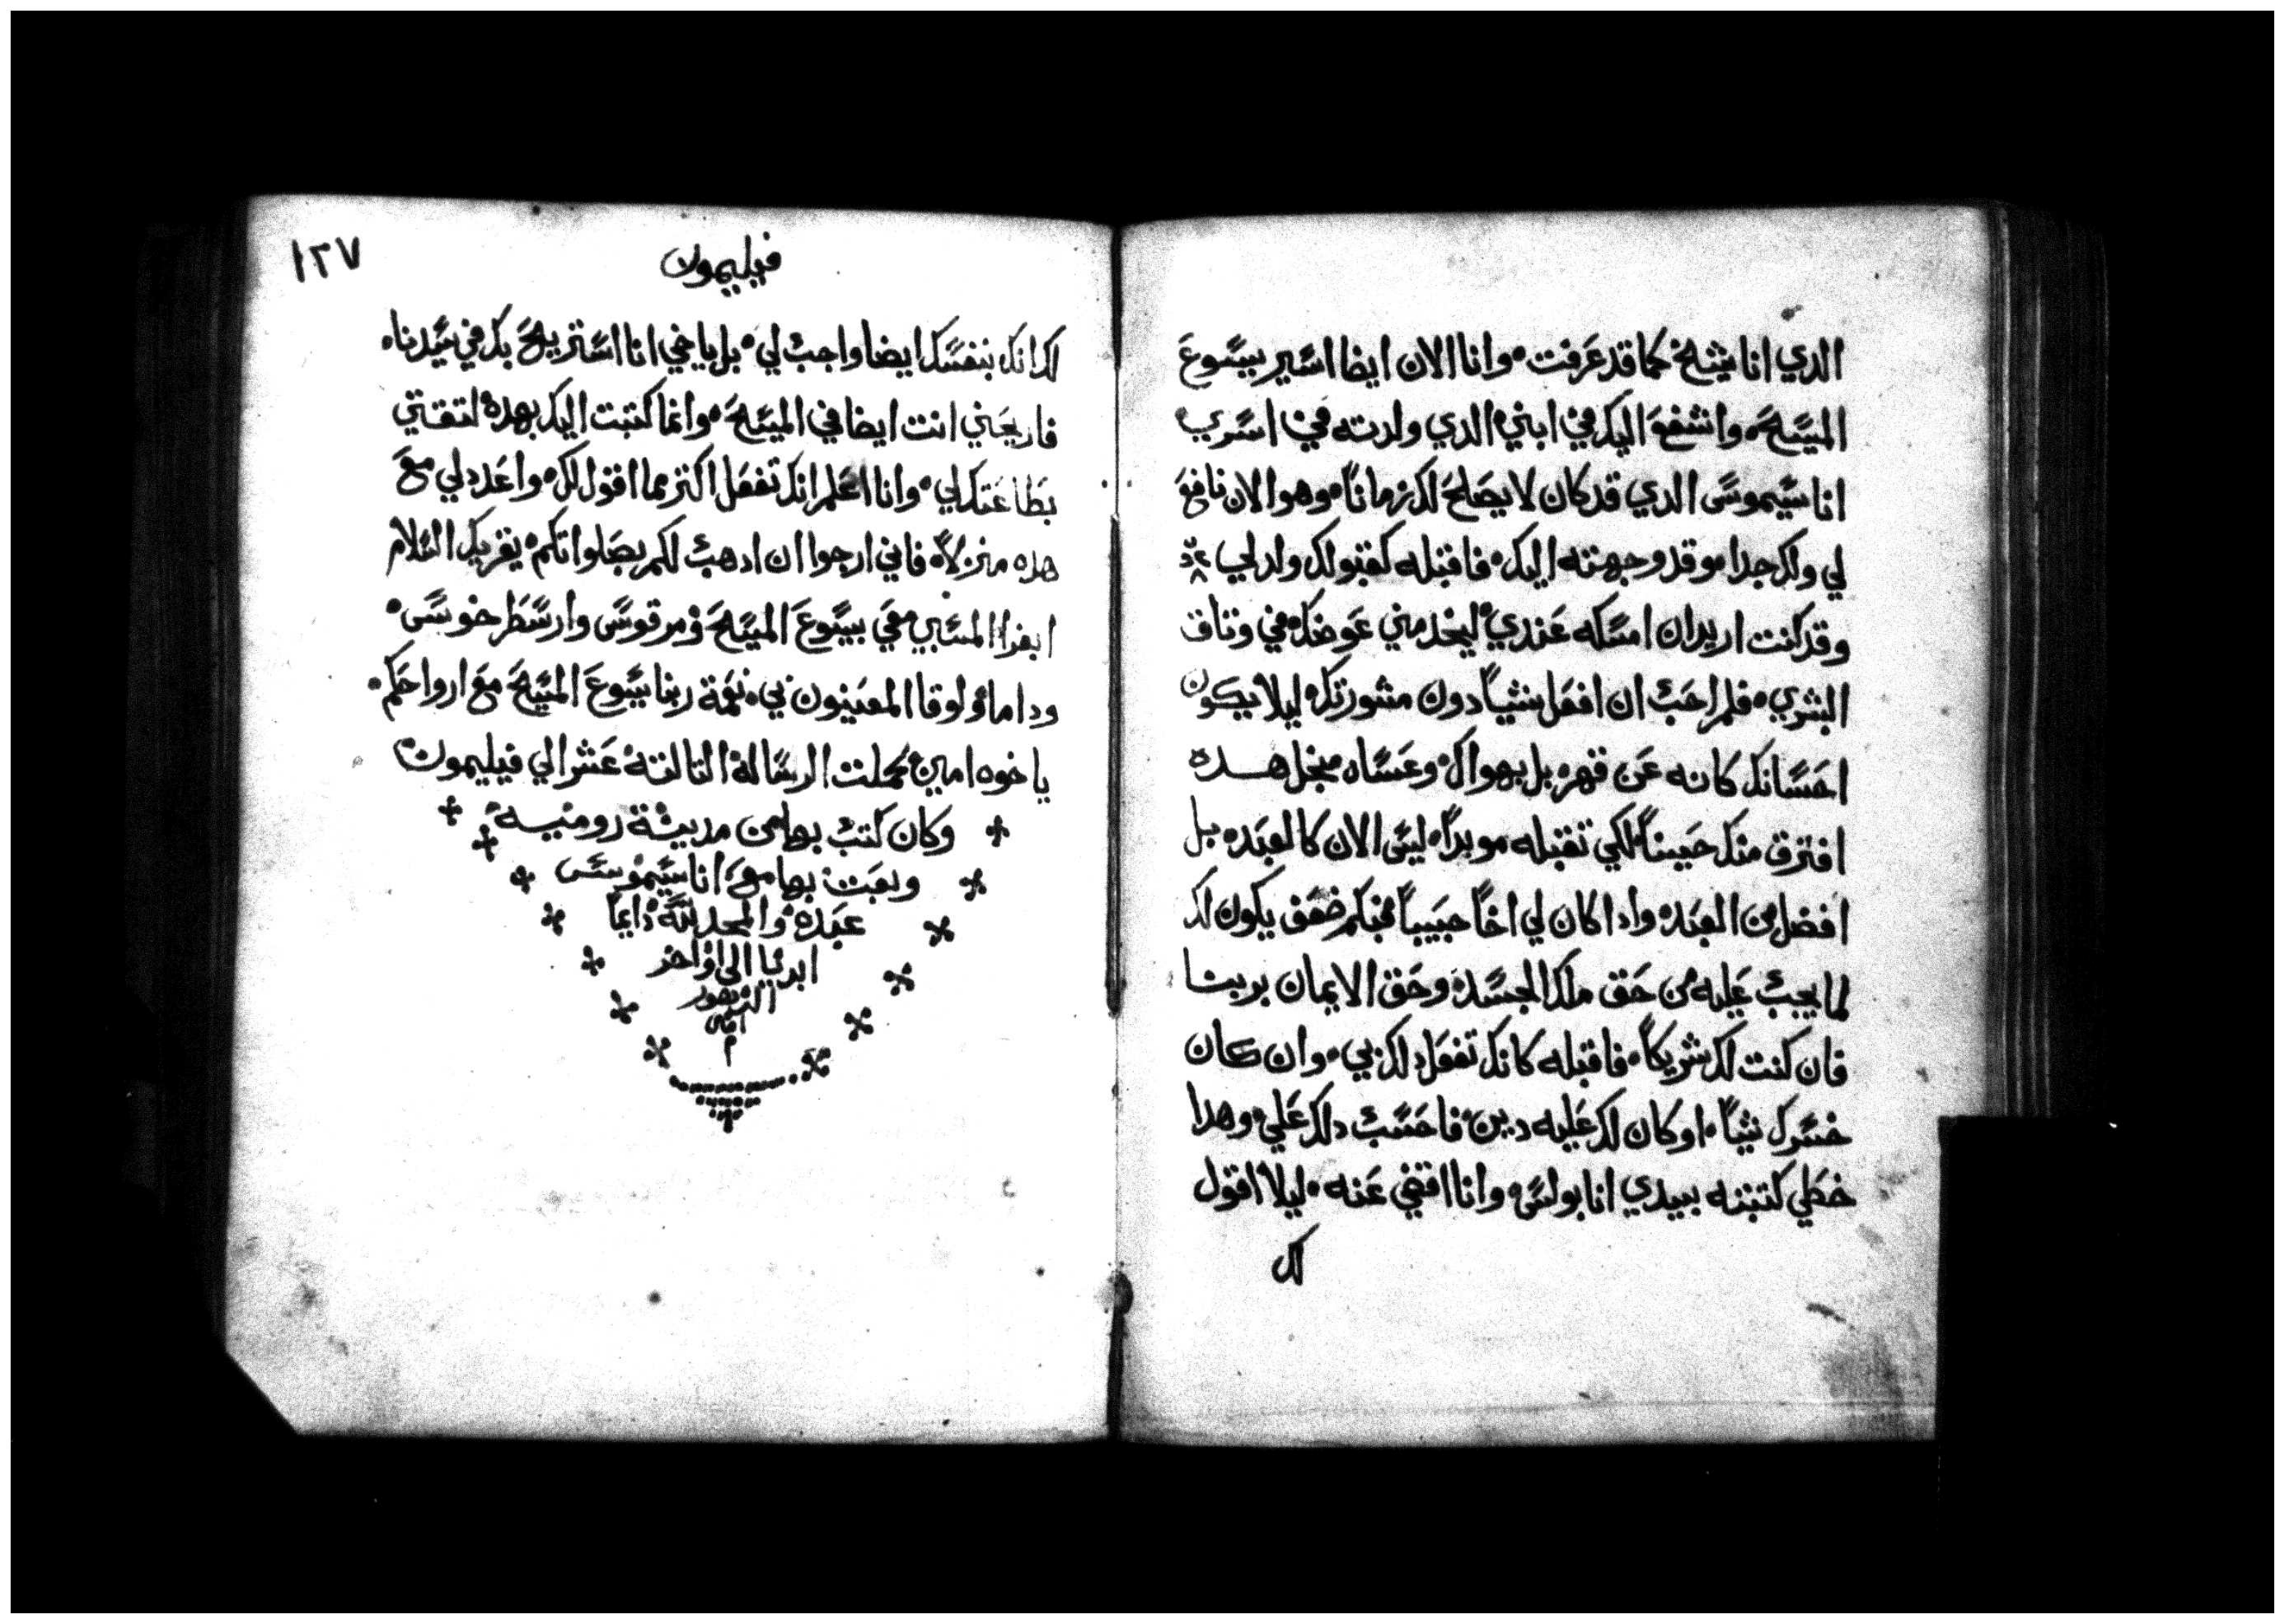 الدي انا شيخ كما قد عرفت٠ وانا الان ايضا اسير يسوع
المسيح٠ واشفع اليك في ابني الدي ولدته في اسري
اناسيموس الدي قد كان لا يصلح لك زماناً٠ وهو الان نافع
لي ولك جدا٠ وقد وجهته اليك٠ فاقبله كقبولك ولد لي
وقد كنت اريد ان امسكه عندي ليخدمني عوضك في وتاق
البشري٠ فلم احب ان افعل شياً دون مشورتك ليلا يكون
احسانك كانه عن قهر٠ بل بهواك٠ وعساه مجل هده
افترق منك حيناً لكي تقبله موبداً٠ ليس الان كالعبد٠ بل
افضل من العبد٠ وادا كان لي اخاً حبيباً فبكم ضعف يكون لك
لما يجب عليه من حق ملك الجسد٠ وحق الايمان بربنا
فان كنت لك شريكاً٠ فاقبله كانك تفعل دلك بي٠ وان كان
خسرك شياً٠ او كان لك عليه دين٠ فاحسب دلك علي٠ وهدا
خطي كتبته بيدي انا بولس٠ وانا اقضي عنه٠ ليلا اقول
لك
١٢٧
فيليمون
لك انك بنفسك ايضا واجب لي٠ بل يا اخي انا استريح بك في سيدنا٠
فاريحني انت ايضا في المسيح٠ وانما كتبت اليك بهده لتقتي
بطاعتك لي٠ وانا اعلم انك تفعل اكتر مما اقول لك٠ واعدد لي مع
هده منزلاً٠ فاني ارجوا ان ادهب لكم بصلواتكم٠ يقريك السلام
ابفرا المسبي معي بيسوع المسيح٠ ومرقوس وارسطرخوس٠
وداما ولوقا المعينون بي٠ نعمة ربنا يسوع المسيح مع ارواحكم٠
ياخوه امين٠ كملت الرسالة التالتة عشر الي فيليمون
وكان كتب بها من مدينة رومية
وبعت بها مع اناسيموس
عبده٠ والمجد لله دايماً
ابديا الى اواخر
الدهور
امين
م